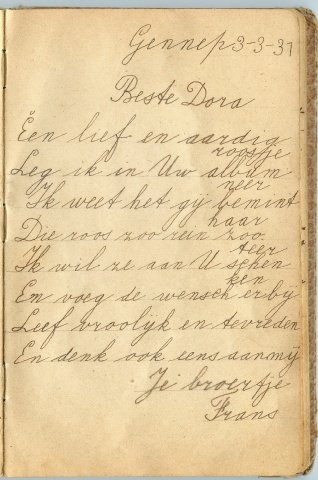 Gennep 3-3-31
Beste Dora
Een lief en aardig
roosje
Leg ik in Uw album
neer
Ik weet het gij bemint
haar
Die roos zoo rein zoo
teer
Ik wil ze aan U schen
ken
En voeg de wensch erbij
Leef vroolijk en tevreden
En denk ook eens aan mij
Je broertje
Frans